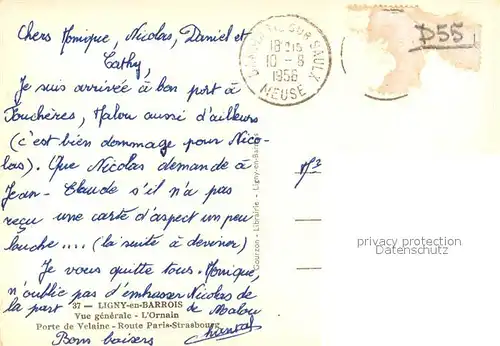 Chers Monique, Nicolas, Daniel et
Cathy,
Je suis arrivée à bon port à
Fouchères, Malou aussi d'ailleurs
(c'est bien dommage pour Nico-
las). Que Nicolas demande à
Jean-Claude s'il n'a pas
reçu une carte d'aspect un peu
louche.... (la suite à deviner)
Je vous quitte tous. Monique,
n'oublie pas d'embrasser Nicolas de
la part de Malou
Bons baisers Chantal
37 - LIGNY-en-BARROIS
Vue générale - L'Ornain
Porte de Velaine - Route Paris-Strasbourg
Gourzon - Librairie - Ligny-en-Barrois
SUR SAULX
18H15
10-8
1956
MEUSE
D55
Mr
privacy protection
Datenschutz